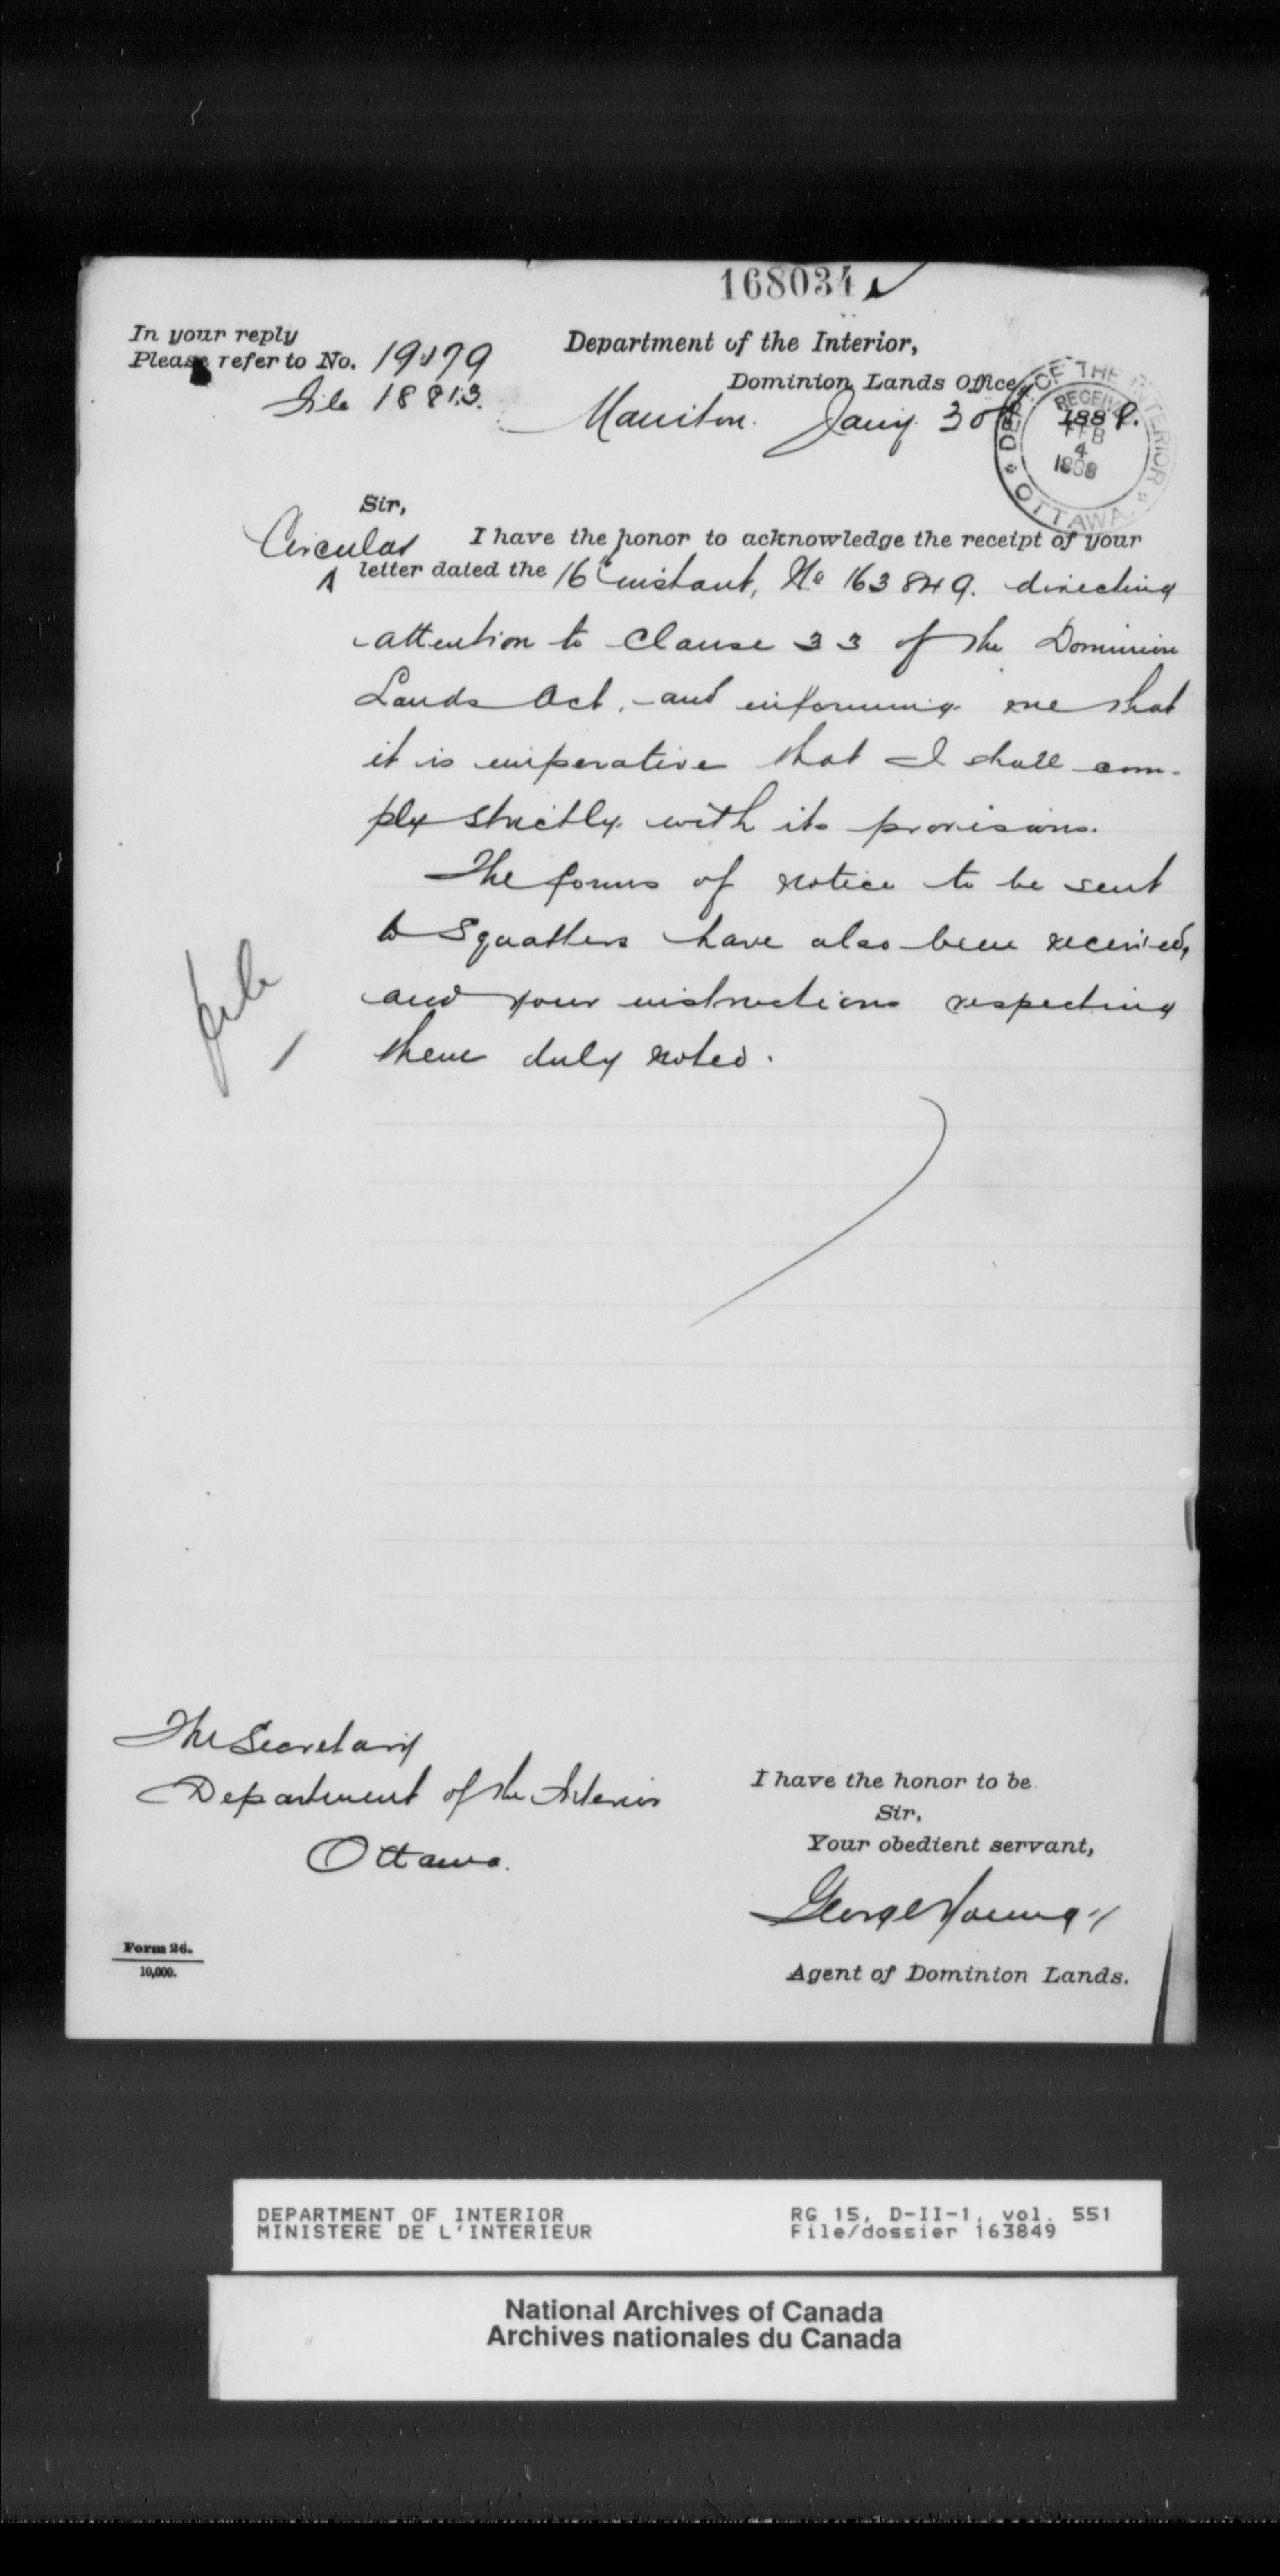 168034
In your reply
Please refer to No. 19179
File 18813.
Department of the Interior,
Dominion Lands Office,
Manitou. Jany. 30th 1888.
DEPT. OF THE INTERIOR
RECEIVED
FEB
4
1888
OTTAWA
Sir,
Circular I have the honor to acknowledge the receipt of your
letter dated the 16th instant, No 163849. directing
attention to Clause 33 of the Dominion
Lands Act, and informing me that
it is imperative that I shall com-
ply strictly with its provisions.
The forms of notice to be sent
to Squatters have also been received,
and your instructions respecting
them duly noted.
file
The Secretary
Department of the Interior
Ottawa.
I have the honor to be
Sir,
Your obedient servant,
George Young
Agent of Dominion Lands.
Form 26.
10,000.
DEPARTMENT OF INTERIOR
MINISTERE DE L'INTERIEUR
RG 15, D-II-1, vol. 551
File/dossier 163849
National Archives of Canada
Archives nationales du Canada